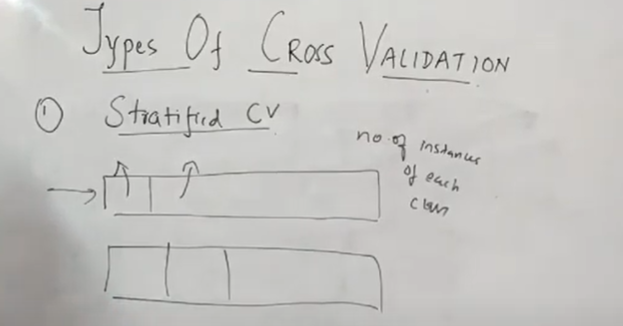 Types Of Cross Validation
① Stratified CV
no. of instances
of each
class